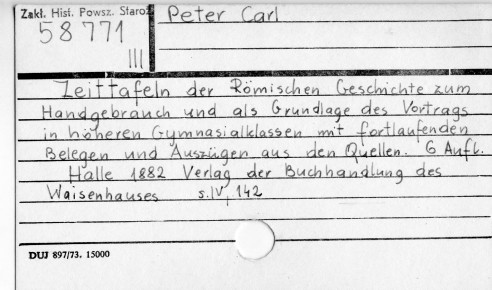 Zakł. Hist. Powsz. Staroż.
Peter Carl
58771
III
Zeittafeln der Römischen Geschichte zum
Handgebrauch und als Grundlage des Vortrags
in höheren Gymnasialklassen mit fortlaufenden
Belegen und Auszügen aus den Quellen. 6 Aufl.
Halle 1882 Verlag der Buchhandlung des
Waisenhauses s. IV, 142
DUJ 897/73. 15000